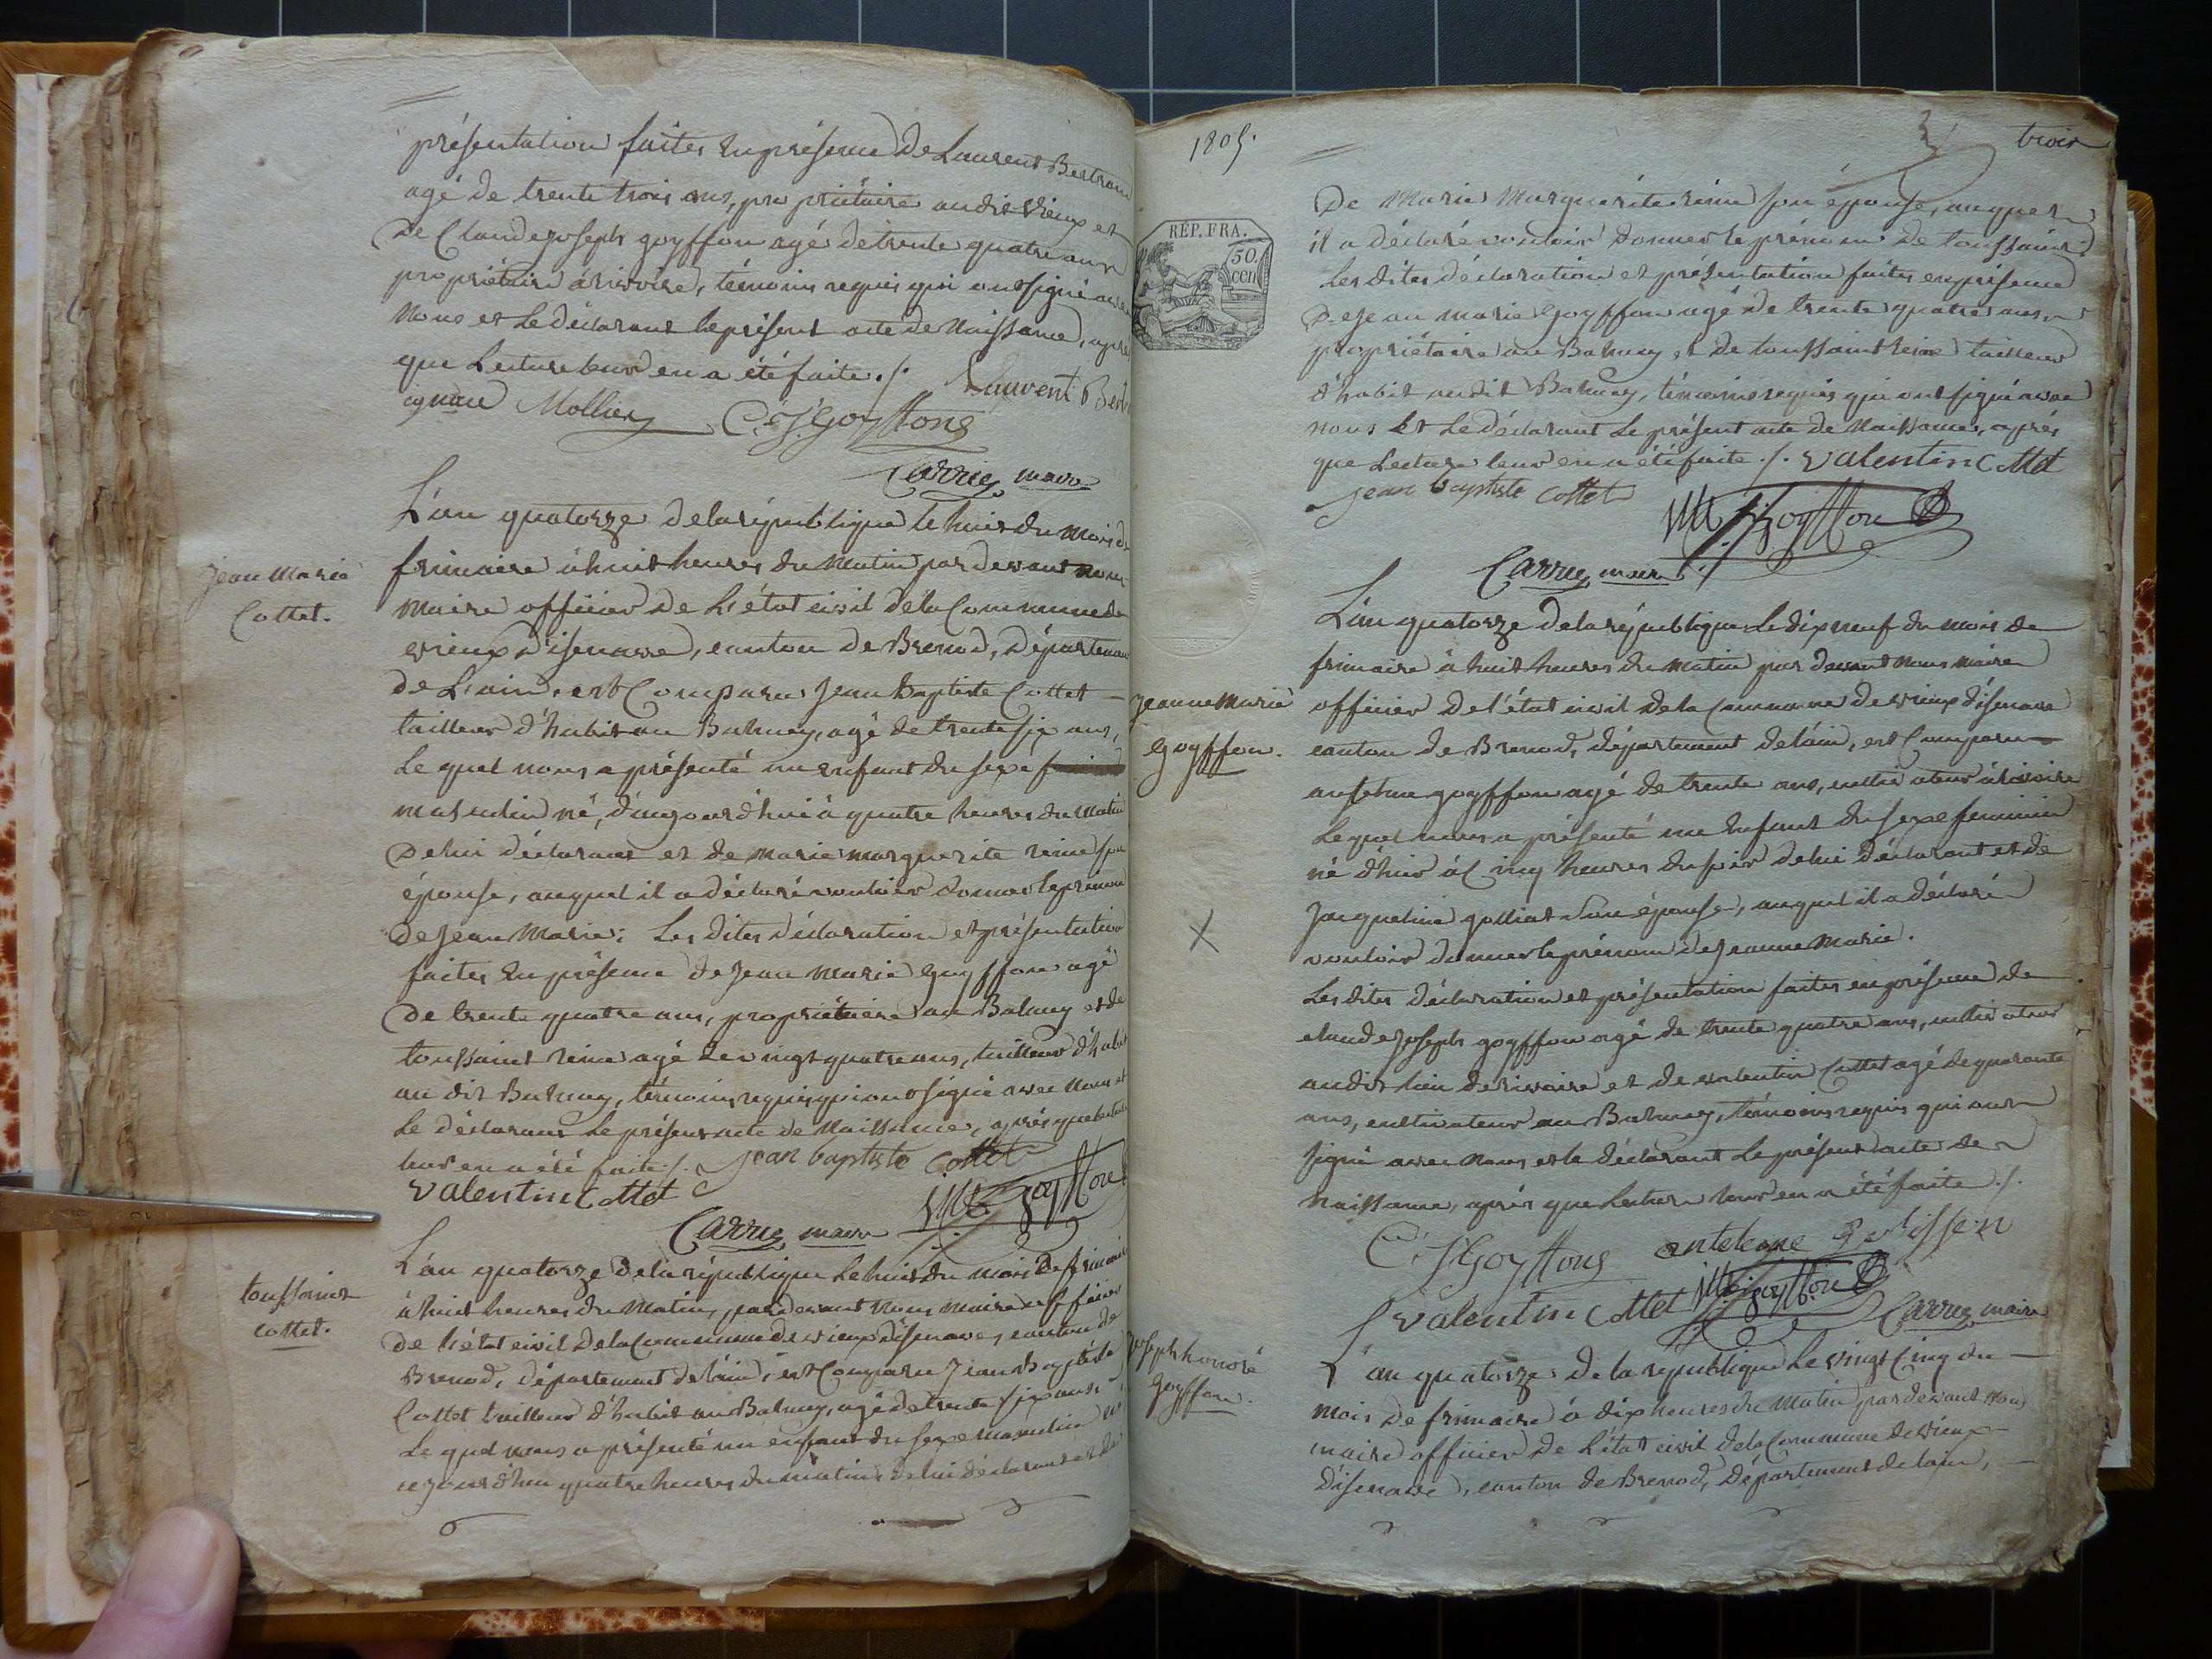 présentation faites en présence de Laurent Bertran
agé de trente trois ans, propriétaire audit Vieux et
de Claude joseph goyffon agé de trente quatre ans
propriétaire à rivoire, témoins requis qui ont signé avec
nous et le déclarant le présent acte de Naissance, après
que Lecture leur en a été faite ./. Laurent Bert
Mollier C. J. Goyffons
Carrier maire
Jean Marie
Cottet.
L'an quatorze de la république le huit du mois de
frimaire à huit heures du matin par devant nous
maire officier de L'état civil de la Commune de
vieux d'isenave, canton de Brenod, départemen
de L'ain, est Comparu Jean Baptiste Cottet
tailleur d'habit au Balmey, agé de trente six ans,
Le quel nous a présenté un enfant du sexe
masculin né, d'aujourd'hui à quatre heures du matin
de lui déclarant et de marie marguerite reine son
épouse, auquel il a déclaré vouloir donner le prénom
de Jean Marie; Les dites déclaration et présentation
faites en présence de Jean marie Goyffon agé
de trente quatre ans, propriétaire au Balmey et de
toussaint reine agé de vingt quatre ans, tailleur d'habit
au dit Balmey, témoins requis qui ont signé avec nous et
le déclarant le présent acte de Naissance, après que lecture
leur en a été faite ./. jean baptiste cottet
valentin cottet JM goyffon
Carrier maire
toussaint
cottet.
L'an quatorze de la république le huit du mois de frimair
à huit heures du matin, par devant nous maire officier
de L'état civil de la Commune de vieux d'isenave, canton de
Brenod, département de l'ain, est Comparu Jean baptiste
Cottet tailleur d'habit au Balmey, agé de trente six ans,
Le quel nous a présenté un enfant du sexe masculin né
cejourd'hui quatre heures du matin de lui déclarant et de
1805.
trois
RÉP. FRA.
50.
cen
de Marie Marguérite reine son épouse, auquel
il a déclaré vouloir donner le prénom de toussaint;
Les dites déclaration et présentation faites en présence
de Jean marie goyffon agé de trente quatre ans,
propriétaire au Balmey et de toussaint reine tailleur
d'habit audit Balmey, témoins requis qui ont signé avec
nous et Le déclarant Le présent acte de Naissance, après
que Lecture leur en a été faite ./. valentin cottet
jean baptiste cottet JM goyffon
Carrier maire
Jeanne Marie
Goyffon.
L'an quatorze de la république Le dix neuf du mois de
frimaire à huit heures du matin par devant nous maire
officier de l'état civil de la Commune de vieux d'isenave
canton de Brenod, département de l'ain, est Comparu
anselme goyffon agé de trente ans, cultivateur à rivoire
Lequel nous a présenté un Enfant du sexe feminin
né d'hier à Cinq heures du soir de lui déclarant et de
Jacqueline golliat son épouse, auquel il a déclaré
vouloir donner le prénom de Jeanne Marie.
X
Les dites déclaration et présentation faites en présence de
claude Joseph goyffon agé de trente quatre ans, cultivateur
audit lieu de rivoire et de valentin Cottet agé de quarante
ans, cultivateur au Balmey, témoins requis qui ont
signé avec nous et le déclarant Le présent acte de
Naissance, après que Lecture leur en a été faite ./.
C. J. Goyffons
valentin cottet JM goyffon Carrier maire
Joseph honoré
Goyffon.
L'an quatorze de la république Le vingt Cinq du
mois de frimaire à dix heures du matin par devant nous
maire officier de L'état civil de la Commune de vieux
d'isenave, canton de Brenod, département de l'ain,